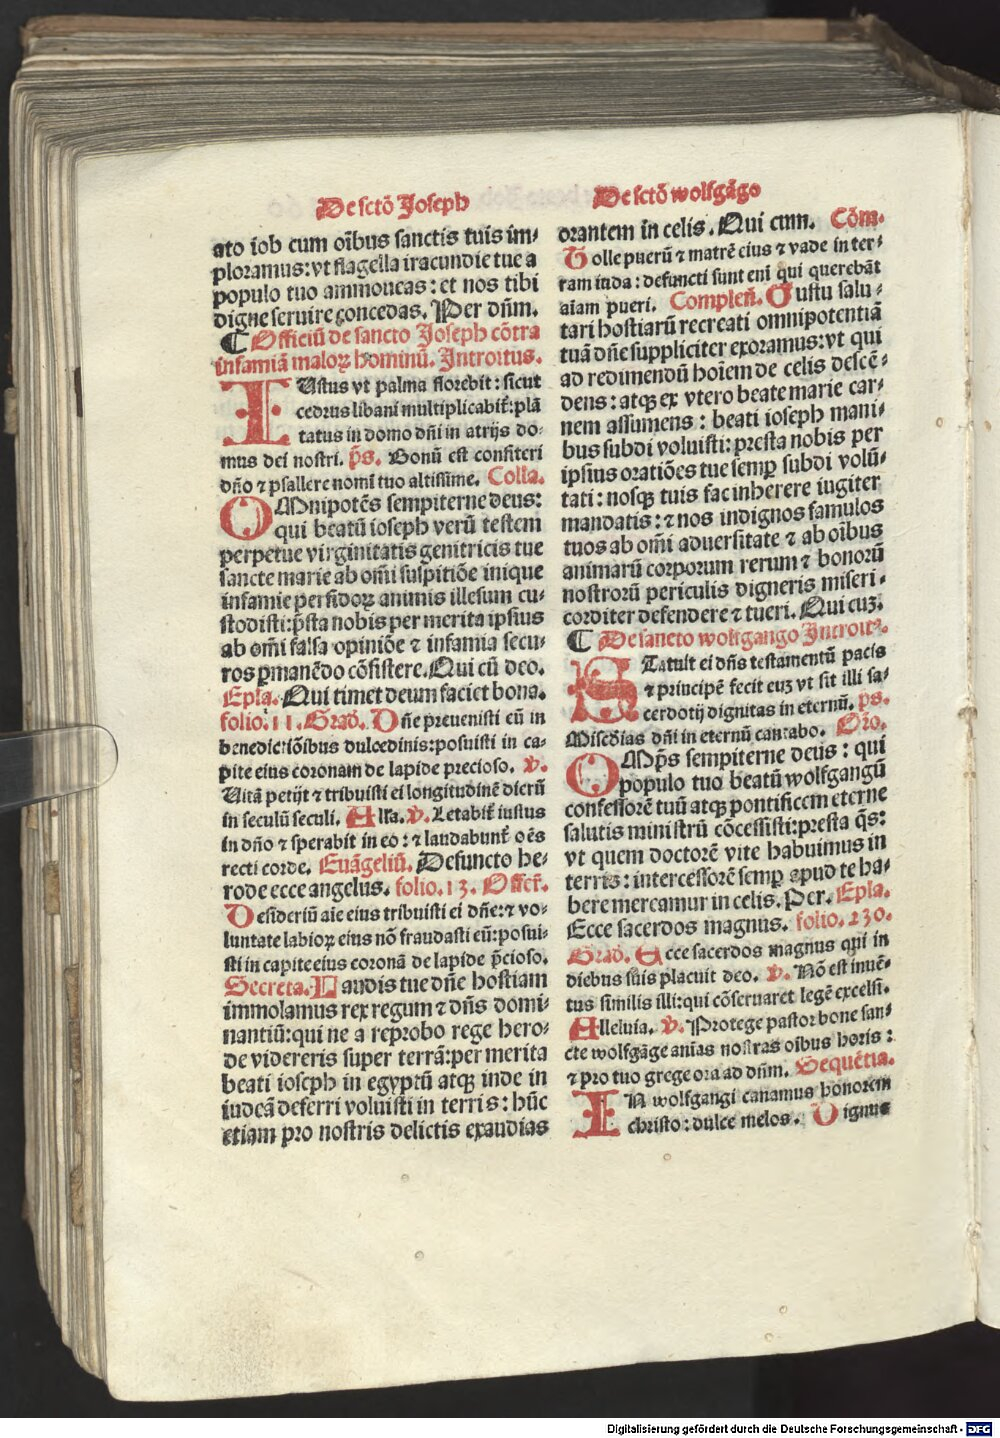 De sctō Joseph
ato iob cum oībus sanctis tuis im-
ploramus: vt flagella iracundie tue a
populo tuo ammoueas: et nos tibi
digne seruire concedas. Per dñm.
¶ Officiū de sancto Joseph cōtra
infamiā maloꝝ hominū. Introitus.
IUstus vt palma florebit: sicut
cedrus libani multiplicabit̄: plā
tatus in domo dñi in atrijs do-
mus dei nostri. p̄s. Bonū est confiteri
dño ⁊ psallere nomī tuo altissime. Colla.
OMnipotēs sempiterne deus:
qui beatū ioseph verū testem
perpetue virginitatis genitricis tue
sancte marie ab om̄i suspitiōe inique
infamie perfidoꝝ animis illesum cu-
stodisti: p̄sta nobis per merita ipsius
ab om̄i falsa opiniōe ⁊ infamia secu-
ros p̱manēdo cōsistere. Qui cū deo.
Epla. Qui timet deum faciet bona.
folio. 11. Grad. Dñe preuenisti eū in
benedictiōibus dulcedinis: posuisti in ca-
pite eius coronam de lapide precioso. v.
Uitā petijt ⁊ tribuisti ei longitudinē dierū
in seculū seculi. Alla. v. Letabit̄ iustus
in dño ⁊ sperabit in eo: ⁊ laudabunt̄ oēs
recti corde. Euāgeliū. Defuncto he-
rode ecce angelus. folio. 13. Offer̄.
Desideriū aīe eius tribuisti ei dñe: ⁊ vo-
luntate labioꝝ eius nō fraudasti eū: posui-
sti in capite eius coronā de lapide p̄cioso.
Secreta. Laudis tue dñe hostiam
immolamus rex regum ⁊ dñs domi-
nantiū: qui ne a reprobo rege hero-
de videreris super terrā: per merita
beati ioseph in egyptū atqꝫ inde in
iudeā deferri voluisti in terris: hūc
etiam pro nostris delictis exaudias
De sctō wolfgāgo
orantem in celis. Qui cum. Cōm.
Tolle puerū ⁊ matrē eius ⁊ vade in ter-
ram iuda: defuncti sunt enī qui querebāt
aīam pueri. Compleñ. Gustu salu-
tari hostiarū recreati omnipotentiā
tuā dñe suppliciter exoramus: vt qui
ad redimendū hoīem de celis descē-
dens: atqꝫ ex vtero beate marie car-
nem assumens: beati ioseph mani-
bus subdi voluisti: presta nobis per
ipsius oratiōes tue semp̱ subdi volū-
tati: nosqꝫ tuis fac inherere iugiter
mandatis: ⁊ nos indignos famulos
tuos ab om̄i aduersitate ⁊ ab oībus
animarū corporum rerum ⁊ bonorū
nostrorū periculis digneris miseri-
corditer defendere ⁊ tueri. Qui cuꝫ.
¶ De sancto wolfgango Introitꝰ.
STatuit ei dñs testamentū pacis
⁊ principē fecit euꝫ vt sit illi sa-
cerdotij dignitas in eternū. ps.
Misedias dñi in eternū cantabo. Or̄o.
OMp̄s sempiterne deus: qui
populo tuo beatū wolfgangū
confessorē tuū atqꝫ pontificem eterne
salutis ministrū cōcessisti: presta q̄s:
vt quem doctorē vite habuimus in
terris: intercessorē semp̱ apud te ha-
bere mereamur in celis. Per. Epla.
Ecce sacerdos magnus. folio. 230.
Grad. Ecce sacerdos magnus qui in
diebus suis placuit deo. v. Nō est inuē-
tus similis illi: qui cōseruaret legē excelsi.
Alleluia. v. Protege pastor bone san-
cte wolfgāge anīas nostras oībus horis:
⁊ pro tuo grege ora ad dñm. Sequētia.
IN wolfgangi canamus honorem
christo: dulce melos. Dignus
Digitalisierung gefördert durch die Deutsche Forschungsgemeinschaft - DFG